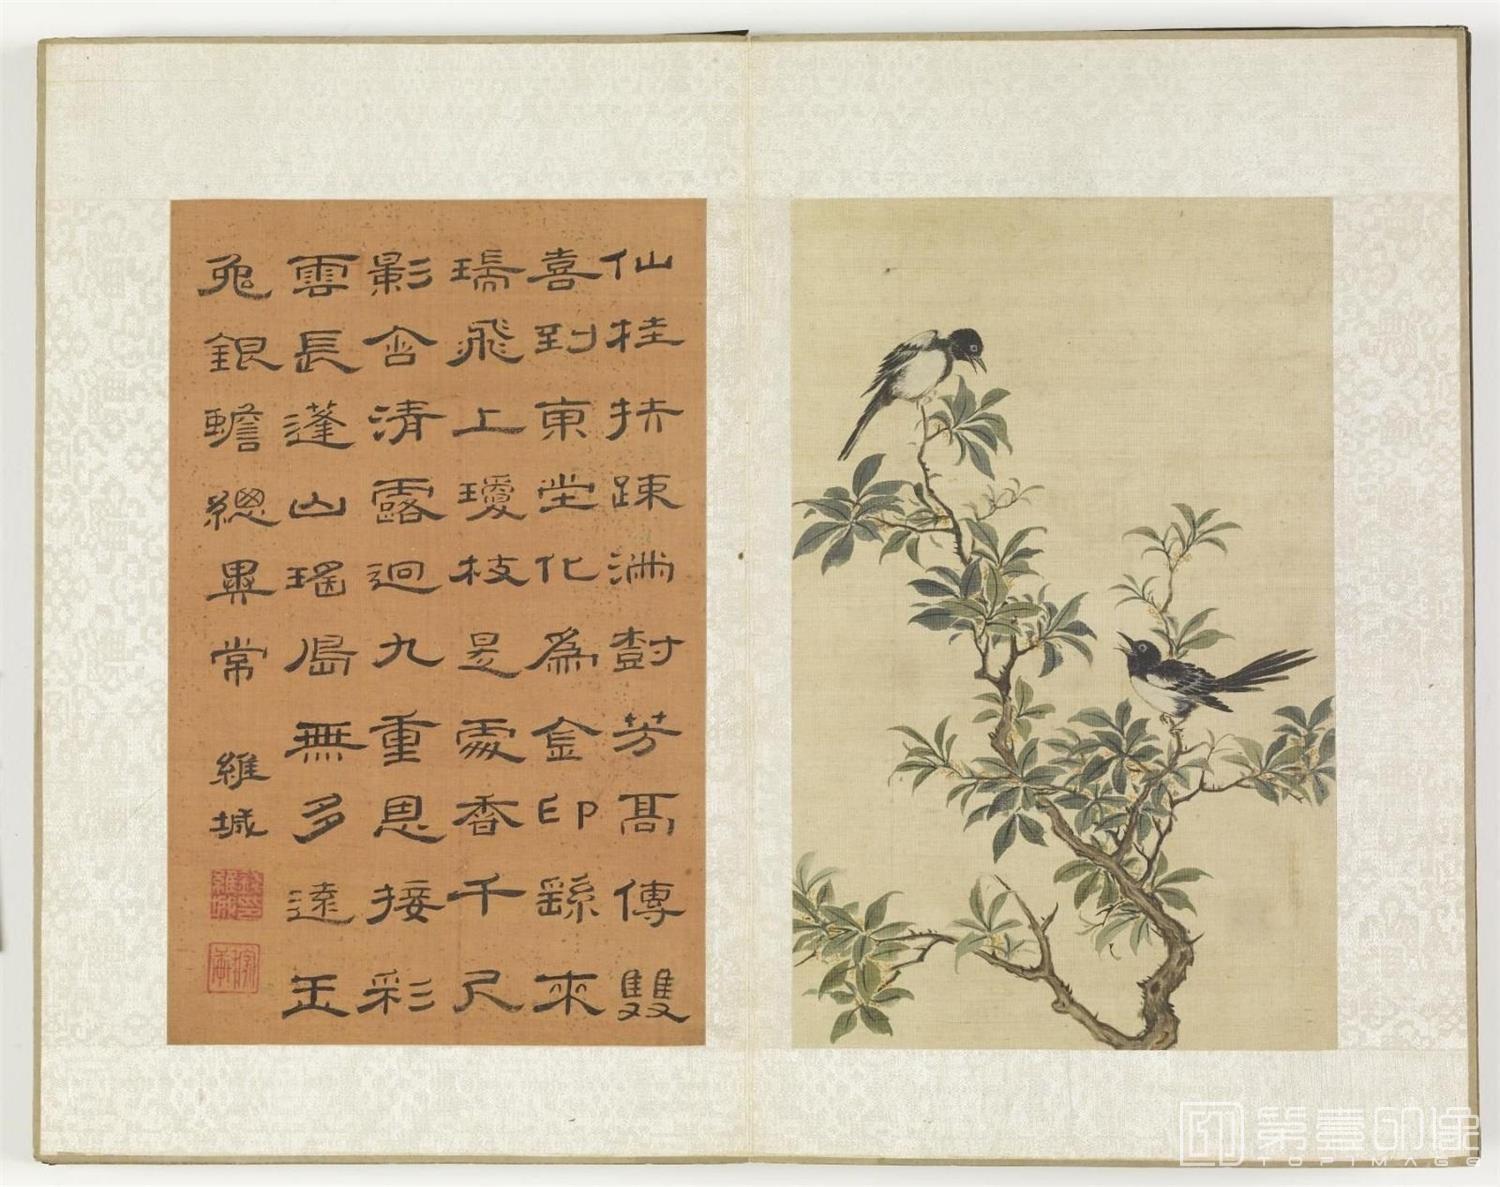 仙桂扶疎滿樹芳髙傳雙
喜到東堂化爲金印繇來
瑞飛上瓊枝是處香千尺
影含清露迥九重恩接彩
雲長蓬山瑤島無多遠玉
兔銀蟾總異常
維城
錢印維城
第壹印像
TOPIMAGE